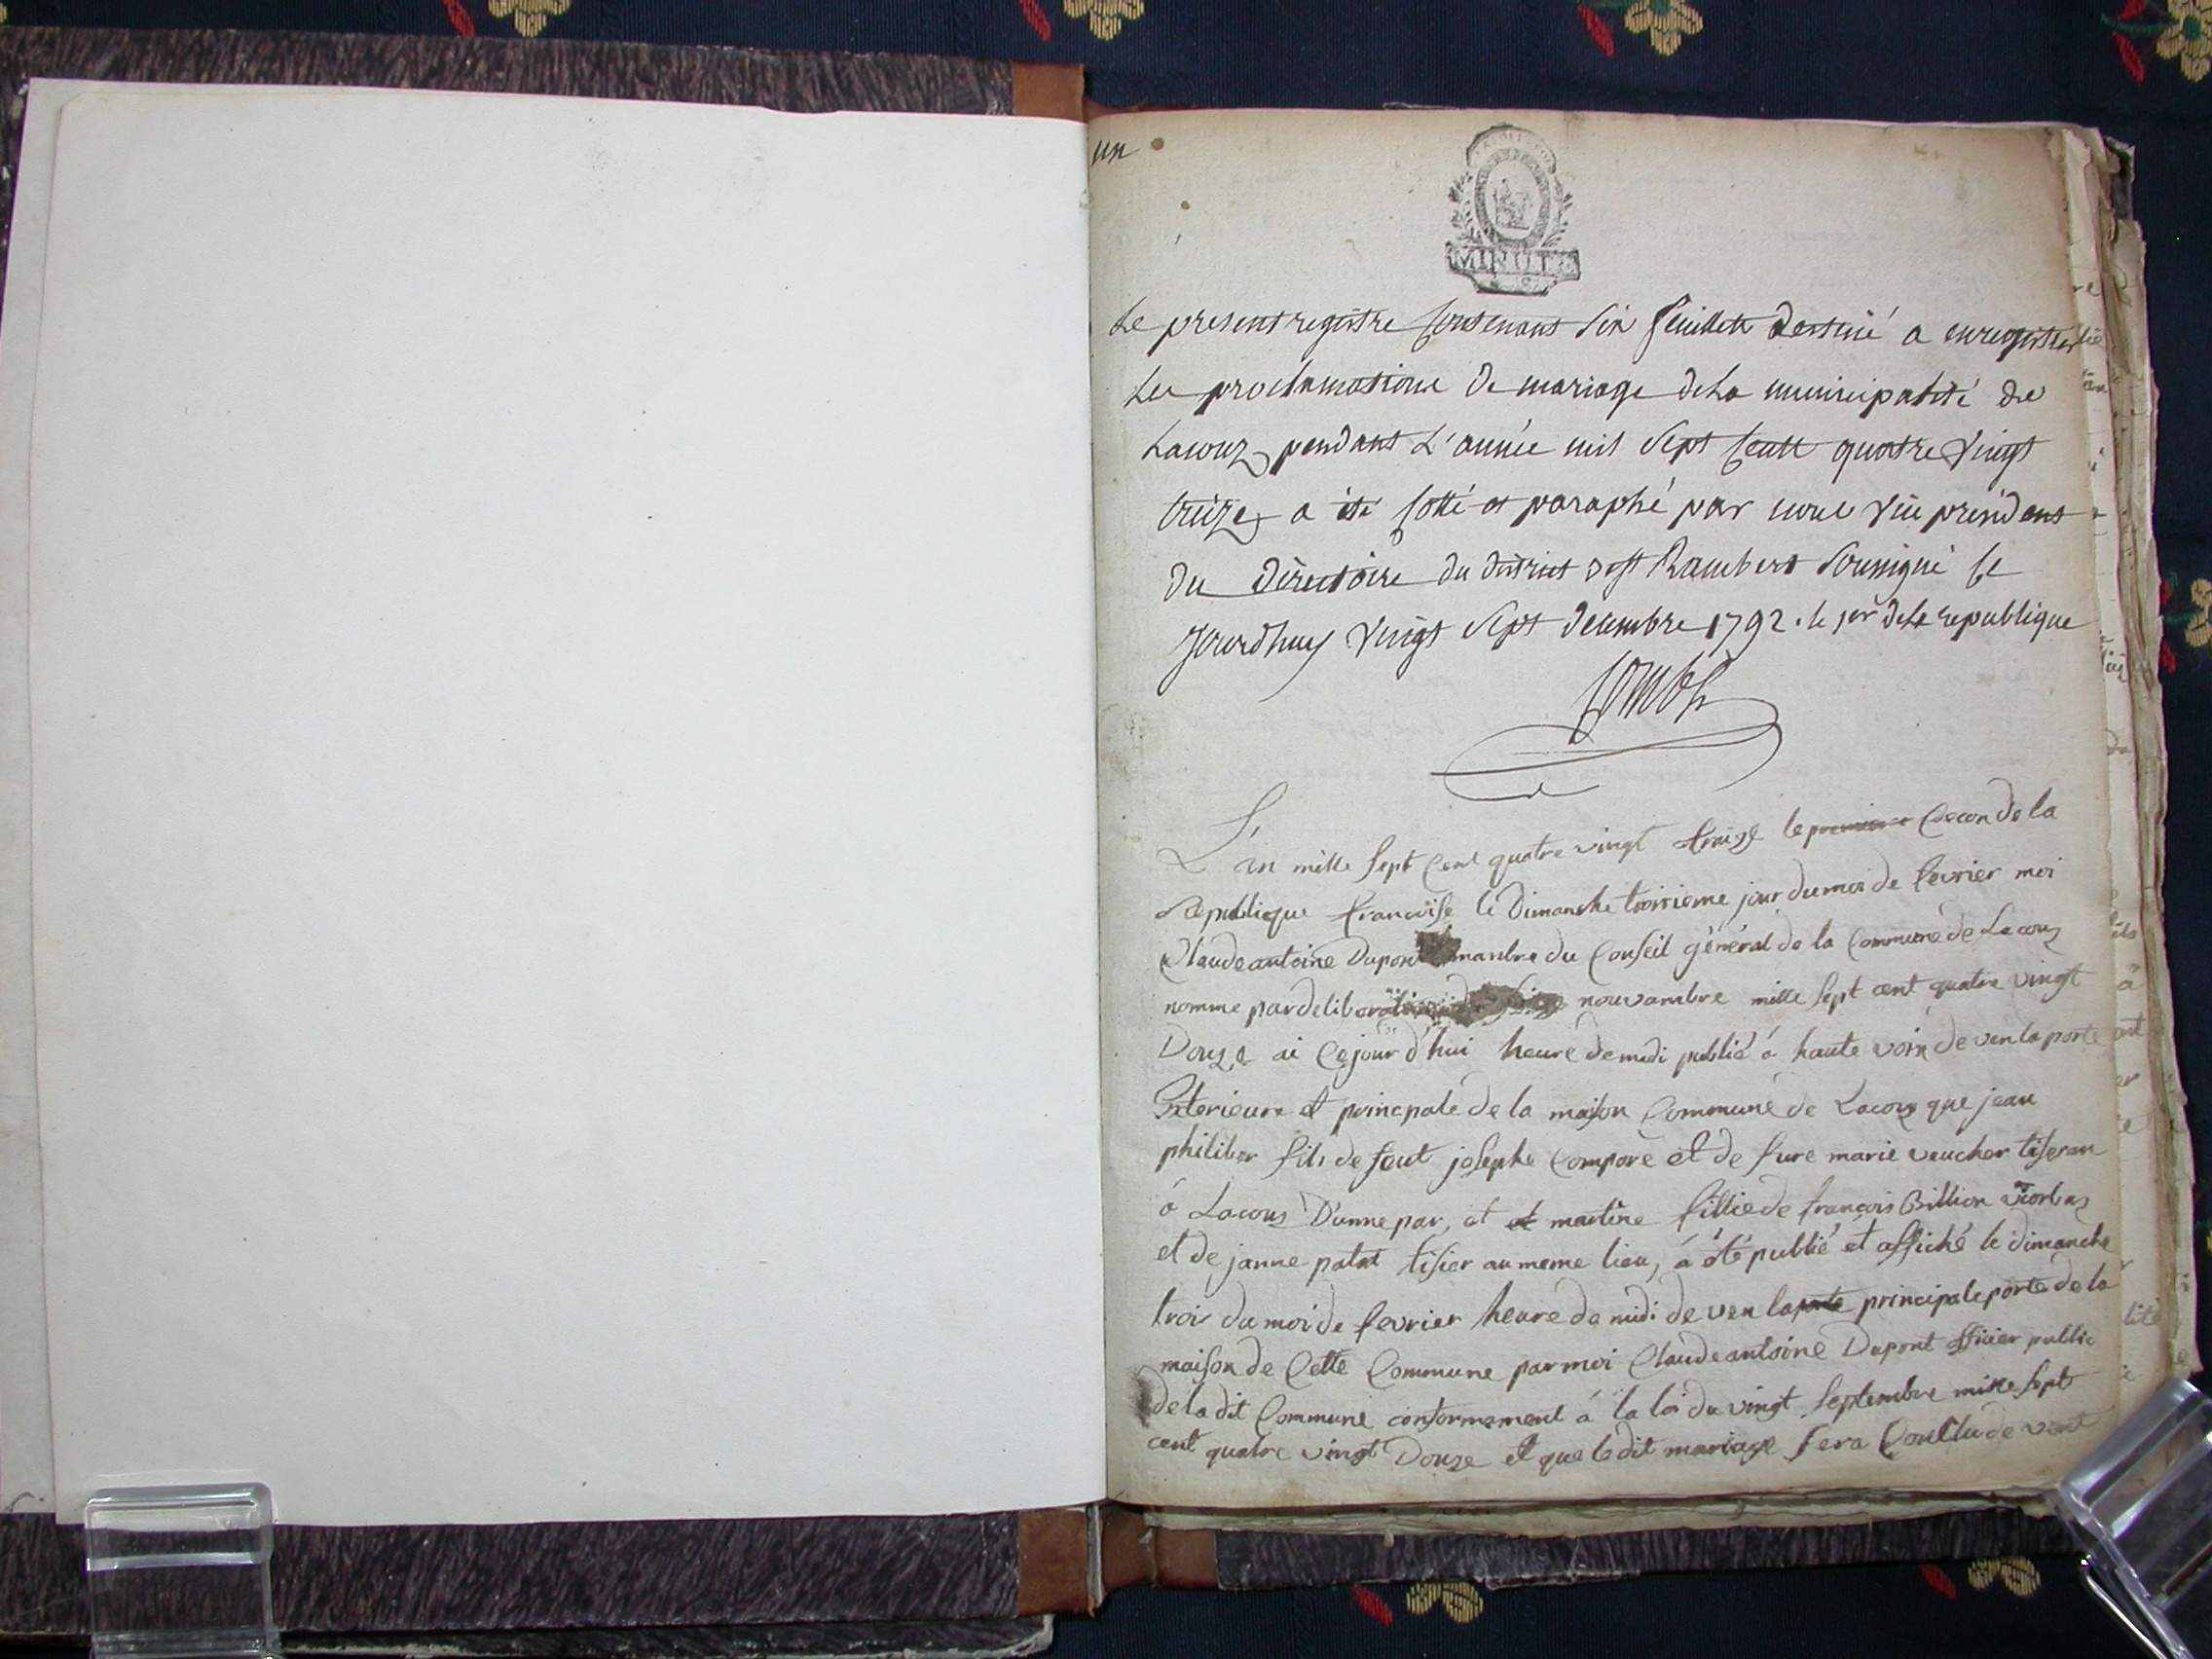 un
MINUTE
Le present registre Contenant six feuillets destiné a enregistrer
Les proclamations de mariage de la municipalité de
Lacouz pendant L'année mil sept Cent quatre vingt
treize a été Cotté et paraphé par nous vice président
du directoire du district de st Rambert soussigné Ce
jourdhuy vingt sept decembre 1792. le 1er de la republique
L'an mille sept Cent quatre vingt traize le premiere Csecon de la
Republique francoise le Dimanche troisieme jour du moi de fevrier moi
Claude antoine Dupont manbre du Conseil général de la Commune de Lacouz
nomme par deliberation nouvambre mille sept cent quatre vingt
Douze ai Cejour d'hui heure de midi publié á haute voix de ven la porte
Exterieure et principale de la maison Commune de Lacouz que jean
philiber fils de faut josephe Compore et de fure marie vaucher tiseran
á Lacouz D'unne par, et et martine fillie de françois Billion
et de janne patet tisier au meme lieu, á été publié et affiché le dimanche
trois du moi de fevrier heure de midi de ven la porte principale porte de la
maison de Cette Commune par moi Claude antoine Dupont officier public
de la dit Commune conformement á la loi du vingt septembre mille sept
cent quatre vingt Douze et que le dit mariage sera Conclu de vant